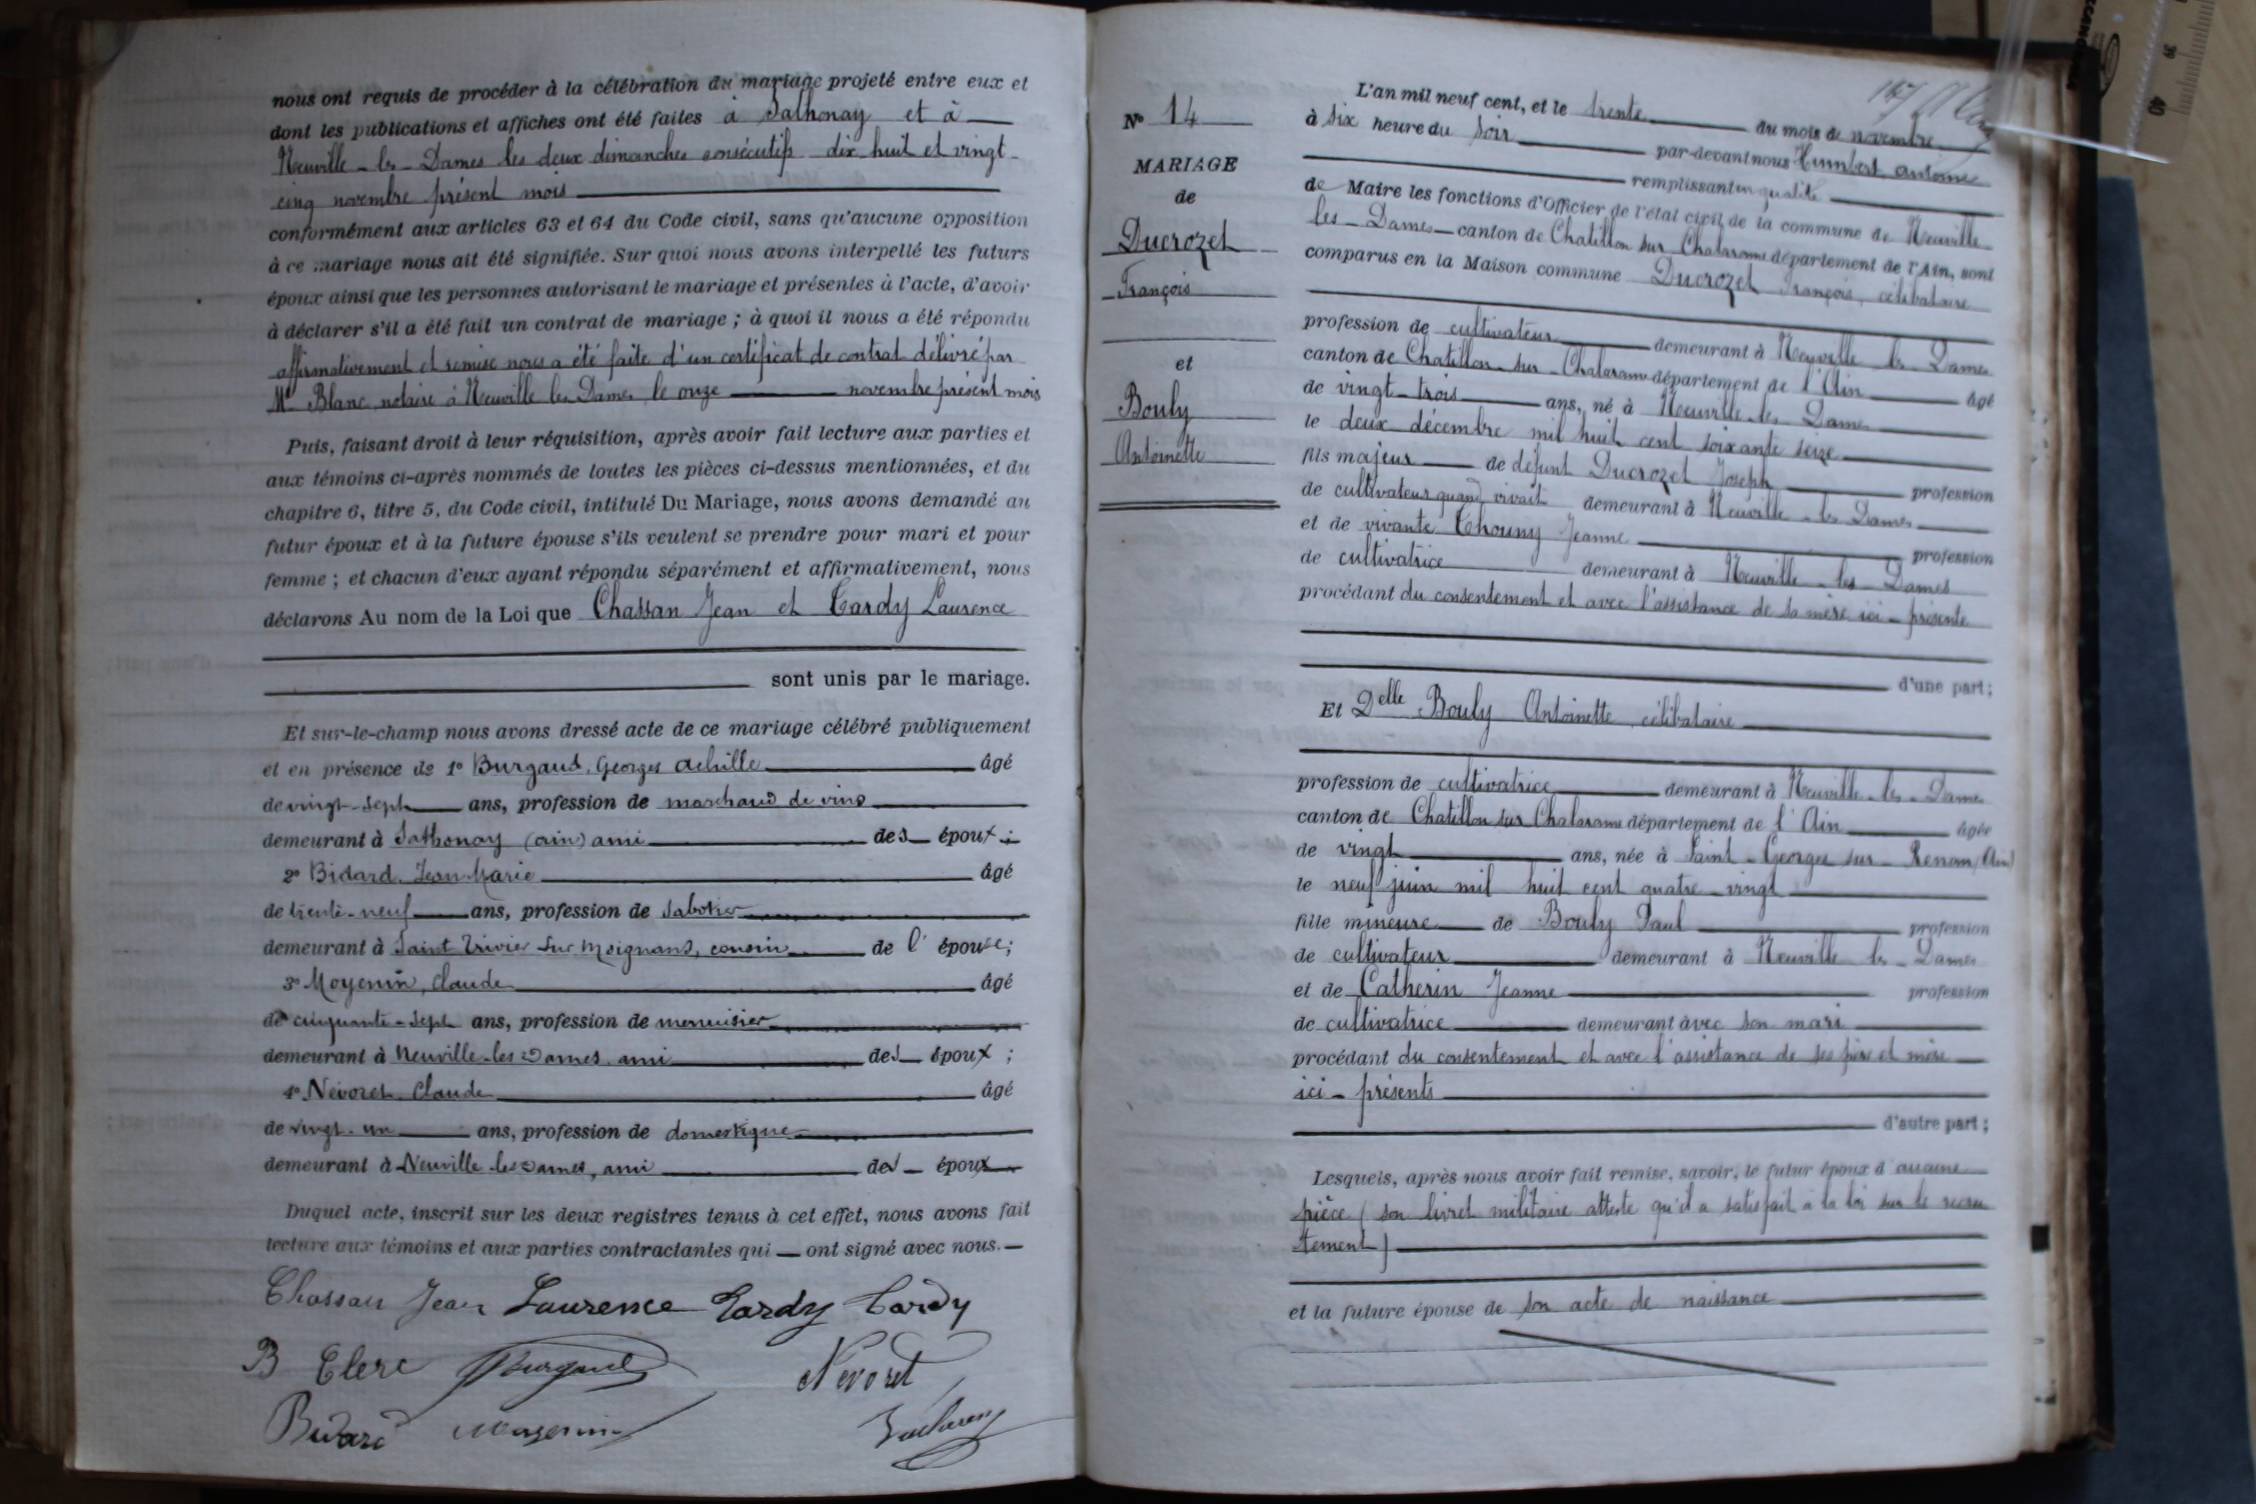 nous ont requis de procéder à la célébration du mariage projeté entre eux et
dont les publications et affiches ont été faites à Sathonay et à
Neuville-les-Dames les deux dimanches consécutifs dix huit et vingt-
cinq novembre présent mois
conformément aux articles 63 et 64 du Code civil, sans qu'aucune opposition
à ce mariage nous ait été signifiée. Sur quoi nous avons interpellé les futurs
époux ainsi que les personnes autorisant le mariage et présentes à l'acte, d'avoir
à déclarer s'il a été fait un contrat de mariage ; à quoi il nous a été répondu
affirmativement et remise nous a été faite d'un certificat de contrat délivré par
Me Blanc notaire à Neuville les Dames le onze novembre présent mois
Puis, faisant droit à leur réquisition, après avoir fait lecture aux parties et
aux témoins ci-après nommés de toutes les pièces ci-dessus mentionnées, et du
chapitre 6, titre 5, du Code civil, intitulé Du Mariage, nous avons demandé au
futur époux et à la future épouse s'ils veulent se prendre pour mari et pour
femme ; et chacun d'eux ayant répondu séparément et affirmativement, nous
déclarons Au nom de la Loi que Chassan Jean et Tardy Laurence
sont unis par le mariage.
Et sur-le-champ nous avons dressé acte de ce mariage célébré publiquement
et en présence de 1° Burgaud, Georges Achille âgé
de vingt-sept ans, profession de marchand de vins
demeurant à Sathonay (ain) ami des époux ;
2° Bidard, Jean-Marie âgé
de trente-neuf ans, profession de sabotier
demeurant à Saint Trivier sur Moignans, cousin de l'épouse ;
3° Moyenin, Claude âgé
de cinquante-sept ans, profession de menuisier
demeurant à Neuville-les-Dames, ami des époux ;
4° Nevoret Claude âgé
de vingt-un ans, profession de domestique
demeurant à Neuville-les-Dames, ami des époux
Duquel acte, inscrit sur les deux registres tenus à cet effet, nous avons fait
lecture aux témoins et aux parties contractantes qui ont signé avec nous.
Chassan Jean Laurence Tardy Tardy
B Clerc Burgaud Nevoret
Bidard Moyenin
N° 14
MARIAGE
de
Ducrozet
François
et
Bouly
Antoinette
L'an mil neuf cent, et le trente du mois de novembre
à six heure du soir par-devant nous Humbert Antoine
remplissant en qualité
de Maire les fonctions d'Officier de l'état civil de la commune de Neuville
les-Dames canton de Chatillon sur Chalaronne département de l'Ain, sont
comparus en la Maison commune Ducrozet François, célibataire
profession de cultivateur demeurant à Neuville les Dames
canton de Chatillon-sur-Chalaronne département de l'Ain âgé
de vingt-trois ans, né à Neuville les Dames
le deux décembre mil huit cent soixante seize
fils majeur de défunt Ducrozet Joseph profession
de cultivateur quand vivait demeurant à Neuville-les Dames
et de vivante Chouny Jeanne profession
de cultivatrice demeurant à Neuville-les Dames
procédant du consentement et avec l'assistance de sa mère ici-présente
d'une part ;
Et Delle Bouly Antoinette célibataire
profession de cultivatrice demeurant à Neuville-les-Dames
canton de Chatillon sur Chalaronne département de l'Ain âgée
de vingt ans, née à Saint-Georges sur-Renom (Ain)
le neuf juin mil huit cent quatre-vingt
fille mineure de Bouly Paul profession
de cultivateur demeurant à Neuville les-Dames
et de Catherin Jeanne profession
de cultivatrice demeurant avec son mari
procédant du consentement et avec l'assistance de ses père et mère
ici-présents
d'autre part ;
Lesquels, après nous avoir fait remise, savoir, le futur époux d'aucune
pièce (son livret militaire atteste qu'il a satisfait à la loi sur le recru
tement)
et la future épouse de son acte de naissance
39
40